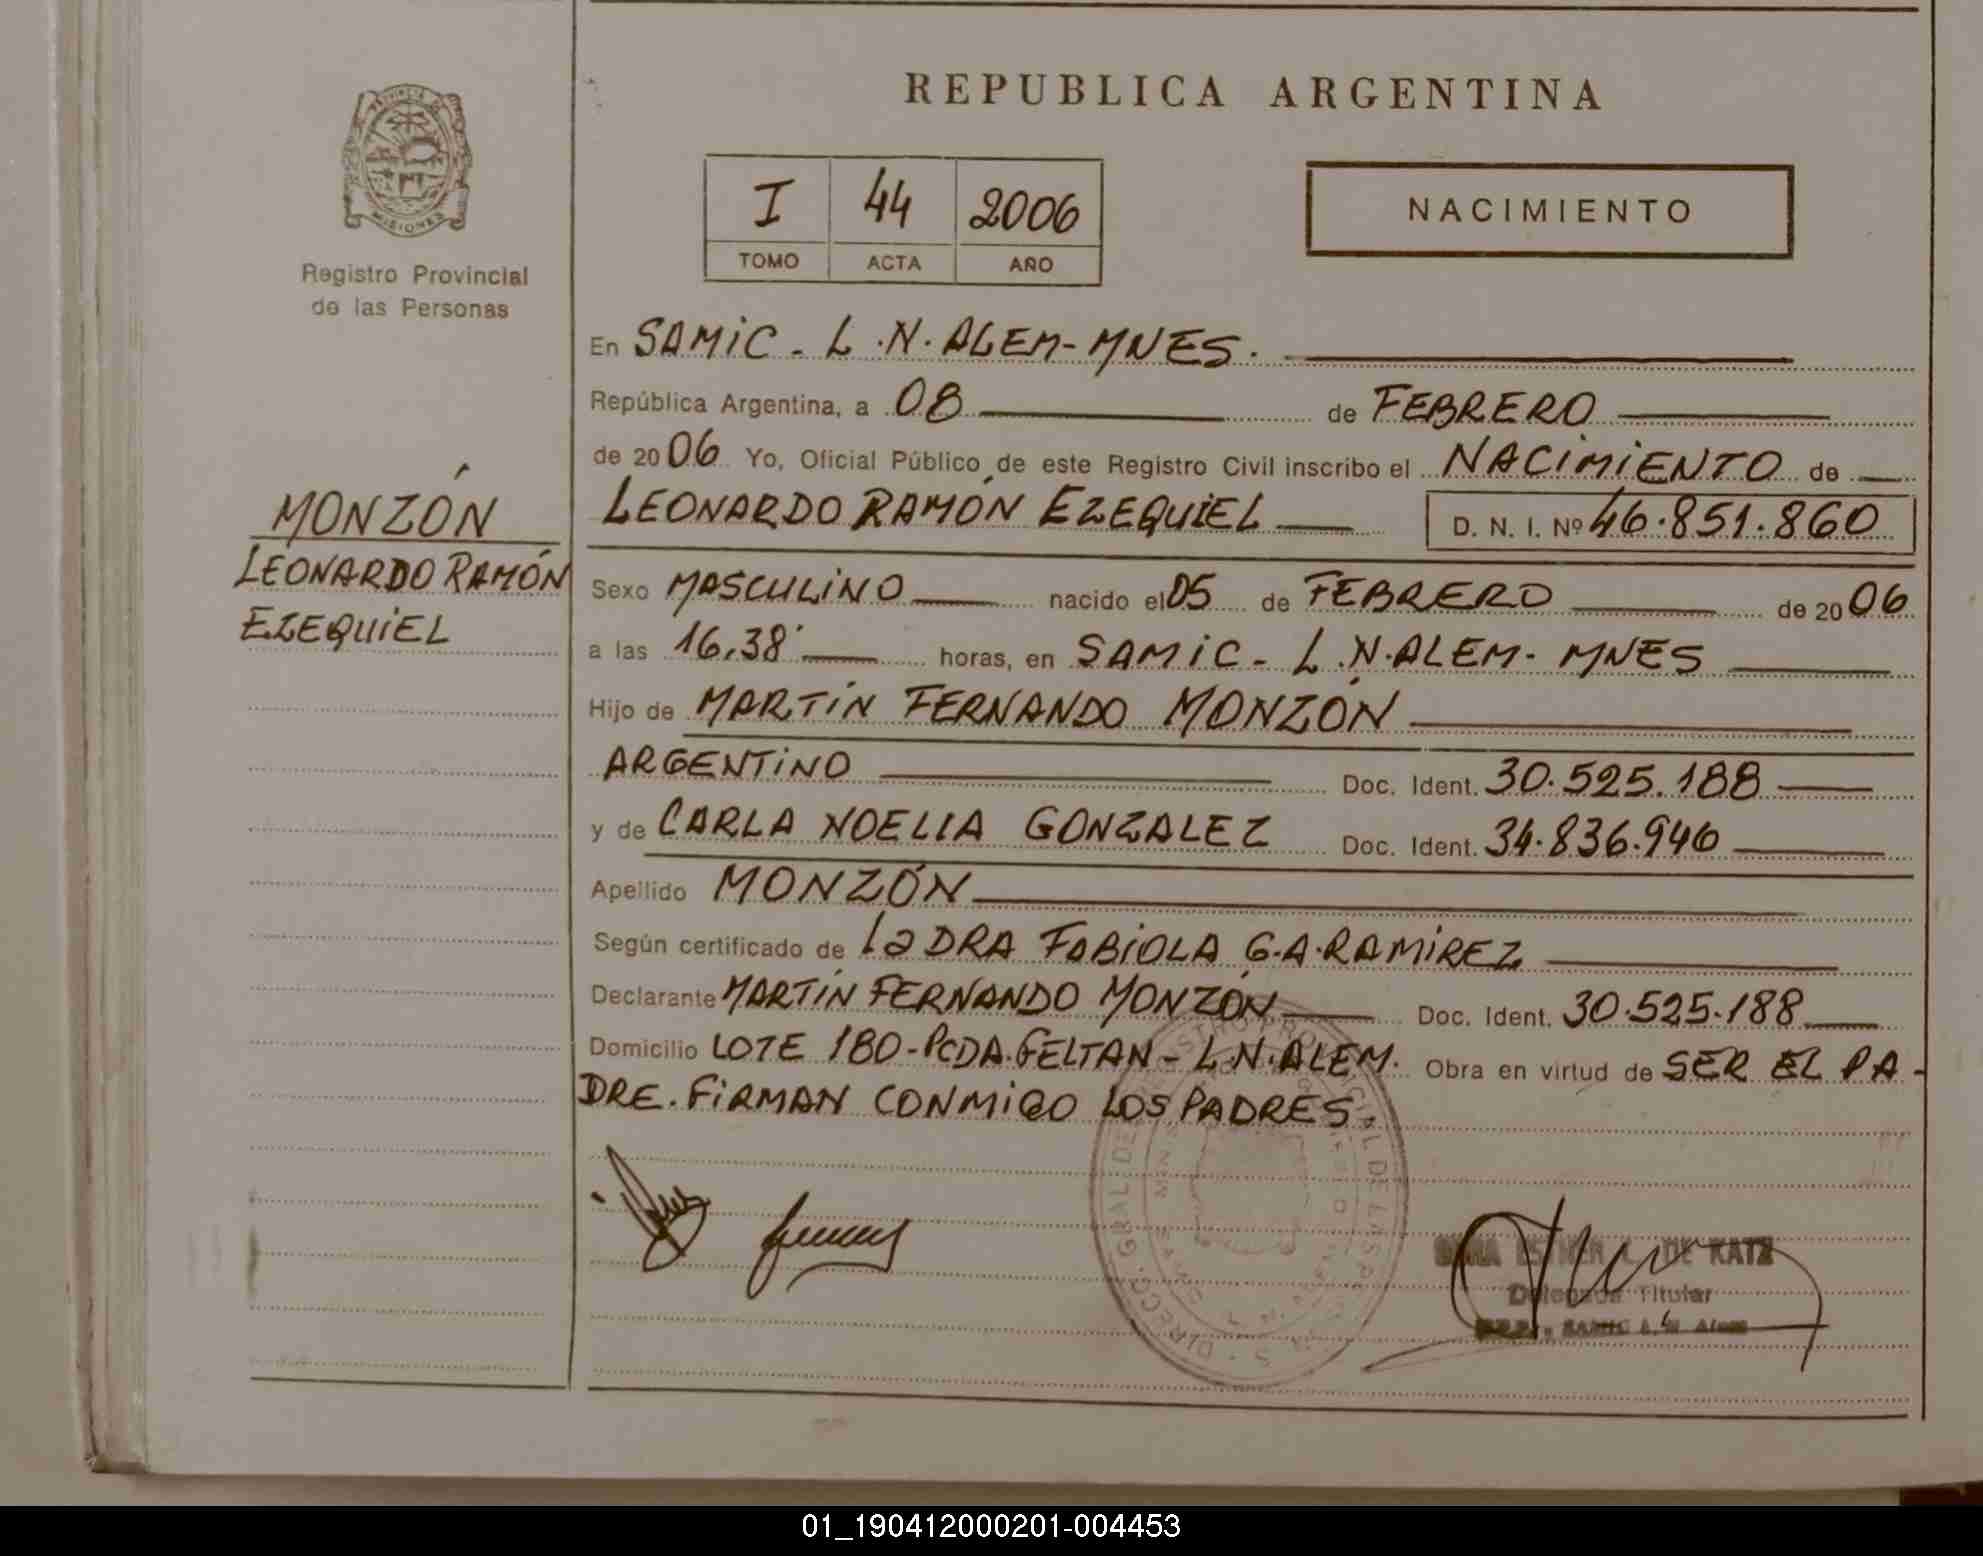 REPUBLICA ARGENTINA
PROVINCIA DE
MISIONES
Registro Provincial
de las Personas
I 44 2006
TOMO ACTA AÑO
NACIMIENTO
En SAMIC - L.N. ALEM - MNES.
República Argentina, a 08 de FEBRERO
de 2006 Yo, Oficial Público de este Registro Civil inscribo el NACIMIENTO de
LEONARDO RAMÓN EZEQUIEL D. N. I. Nº 46.851.860
MONZÓN
LEONARDO RAMÓN
EZEQUIEL
Sexo MASCULINO nacido el 05 de FEBRERO de 2006
a las 16,38' horas, en SAMIC - L.N. ALEM - MNES
Hijo de MARTÍN FERNANDO MONZÓN
ARGENTINO Doc. Ident. 30.525.188
y de CARLA NOELIA GONZALEZ Doc. Ident. 34.836.946
Apellido MONZÓN
Según certificado de la DRA FABIOLA G.A. RAMIREZ
Declarante MARTÍN FERNANDO MONZÓN Doc. Ident. 30.525.188
Domicilio LOTE 180 - PCDA. GELTAN - L.N. ALEM. Obra en virtud de SER EL PA-
DRE. FIRMAN CONMIGO LOS PADRES.
ESTHER DE KATZ
Delegada Titular
SAMIC L. N. Alem
01_190412000201-004453